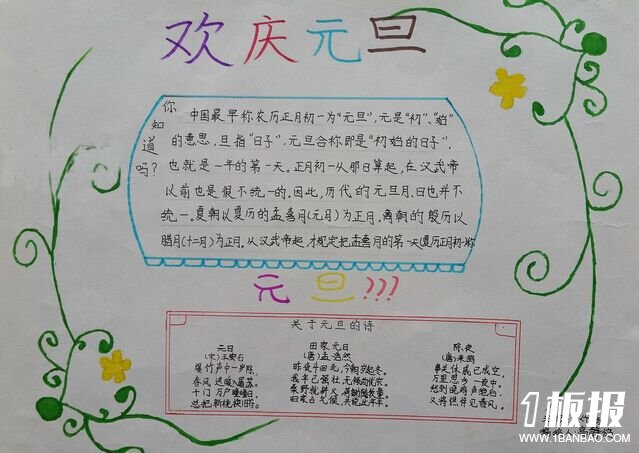 欢庆元旦
你知道吗?
中国最早称农历正月初一为“元旦”,元是“初”、“始”
的意思,旦指“日子”,元旦合称即是“初始的日子”,
也就是一年的第一天。正月初一从那日算起,在汉武帝
以前也是很不统一的。因此,历代的元旦月、日也并不
统一。夏朝以夏历的孟喜月(元月)为正月,商朝的殷历以
腊月(十二月)为正月。从汉武帝起,才规定把孟喜月的第一天(夏历正月初一)称
元旦???
关于元旦的诗
元日
(宋)王安石
爆竹声中一岁除,
春风送暖入屠苏。
千门万户曈曈日,
总把新桃换旧符。
田家元日
(唐)孟浩然
昨夜斗回北,今朝岁起东。
我年已强壮,无禄尚忧农。
田家占气候,共说此年丰。
除夜
(唐)来鹄
事关休戚已成空,
万里思乡一夜中。
愁到晓鸡声绝后,
又将憔悴见春风。
1板报
WWW.1BANBAO.COM